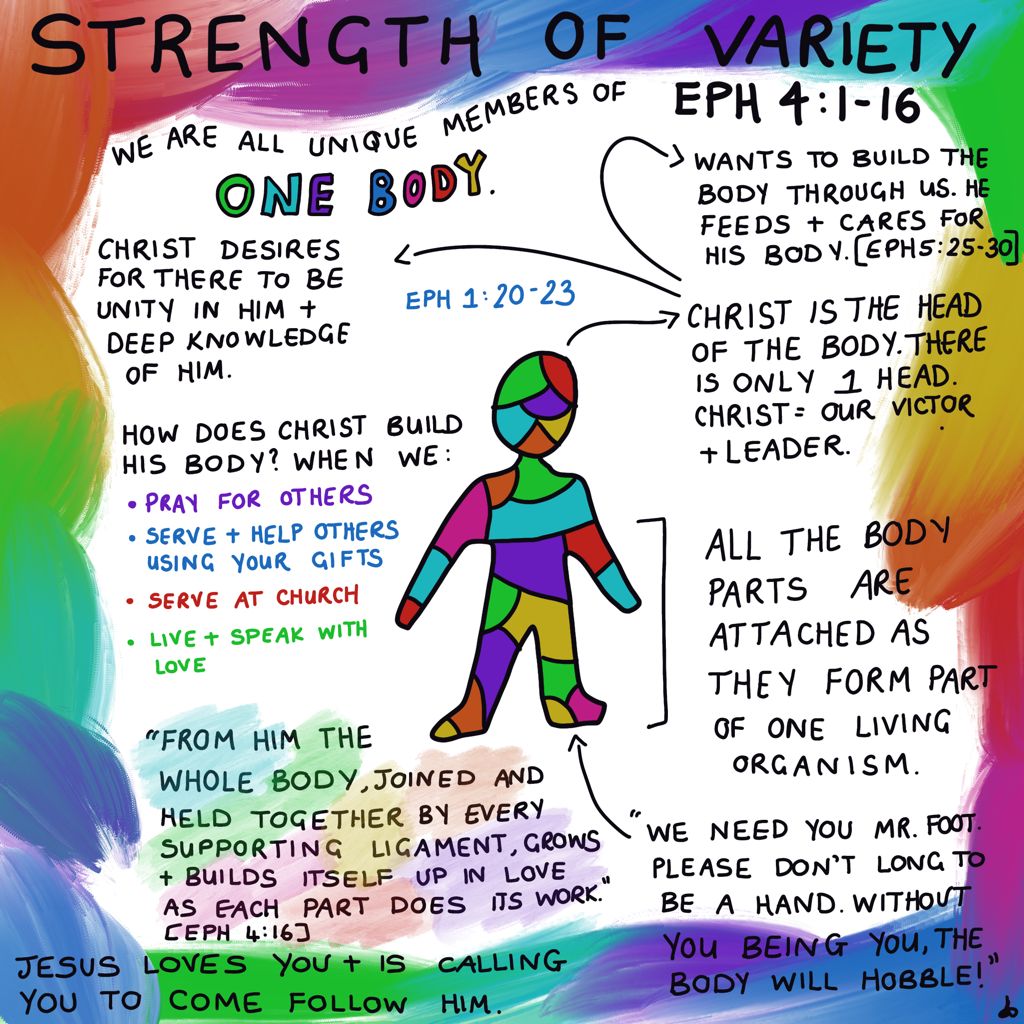 STRENGTH OF VARIETY
EPH 4:1-16
WE ARE ALL UNIQUE MEMBERS OF
ONE BODY.
WANTS TO BUILD THE
BODY THROUGH US. HE
FEEDS + CARES FOR
HIS BODY. [EPH5:25-30]
CHRIST DESIRES
FOR THERE TO BE
UNITY IN HIM +
DEEP KNOWLEDGE
OF HIM.
EPH 1:20-23
CHRIST IS THE HEAD
OF THE BODY. THERE
IS ONLY 1 HEAD.
CHRIST = OUR VICTOR
+ LEADER.
HOW DOES CHRIST BUILD
HIS BODY? WHEN WE:
• PRAY FOR OTHERS
• SERVE + HELP OTHERS
USING YOUR GIFTS
• SERVE AT CHURCH
• LIVE + SPEAK WITH
LOVE
ALL THE BODY
PARTS ARE
ATTACHED AS
THEY FORM PART
OF ONE LIVING
ORGANISM.
"FROM HIM THE
WHOLE BODY, JOINED AND
HELD TOGETHER BY EVERY
SUPPORTING LIGAMENT, GROWS
+ BUILDS ITSELF UP IN LOVE
AS EACH PART DOES ITS WORK."
[EPH 4:16]
"WE NEED YOU MR. FOOT.
PLEASE DON'T LONG TO
BE A HAND. WITHOUT
YOU BEING YOU, THE
BODY WILL HOBBLE!"
JESUS LOVES YOU + IS CALLING
YOU TO COME FOLLOW HIM.